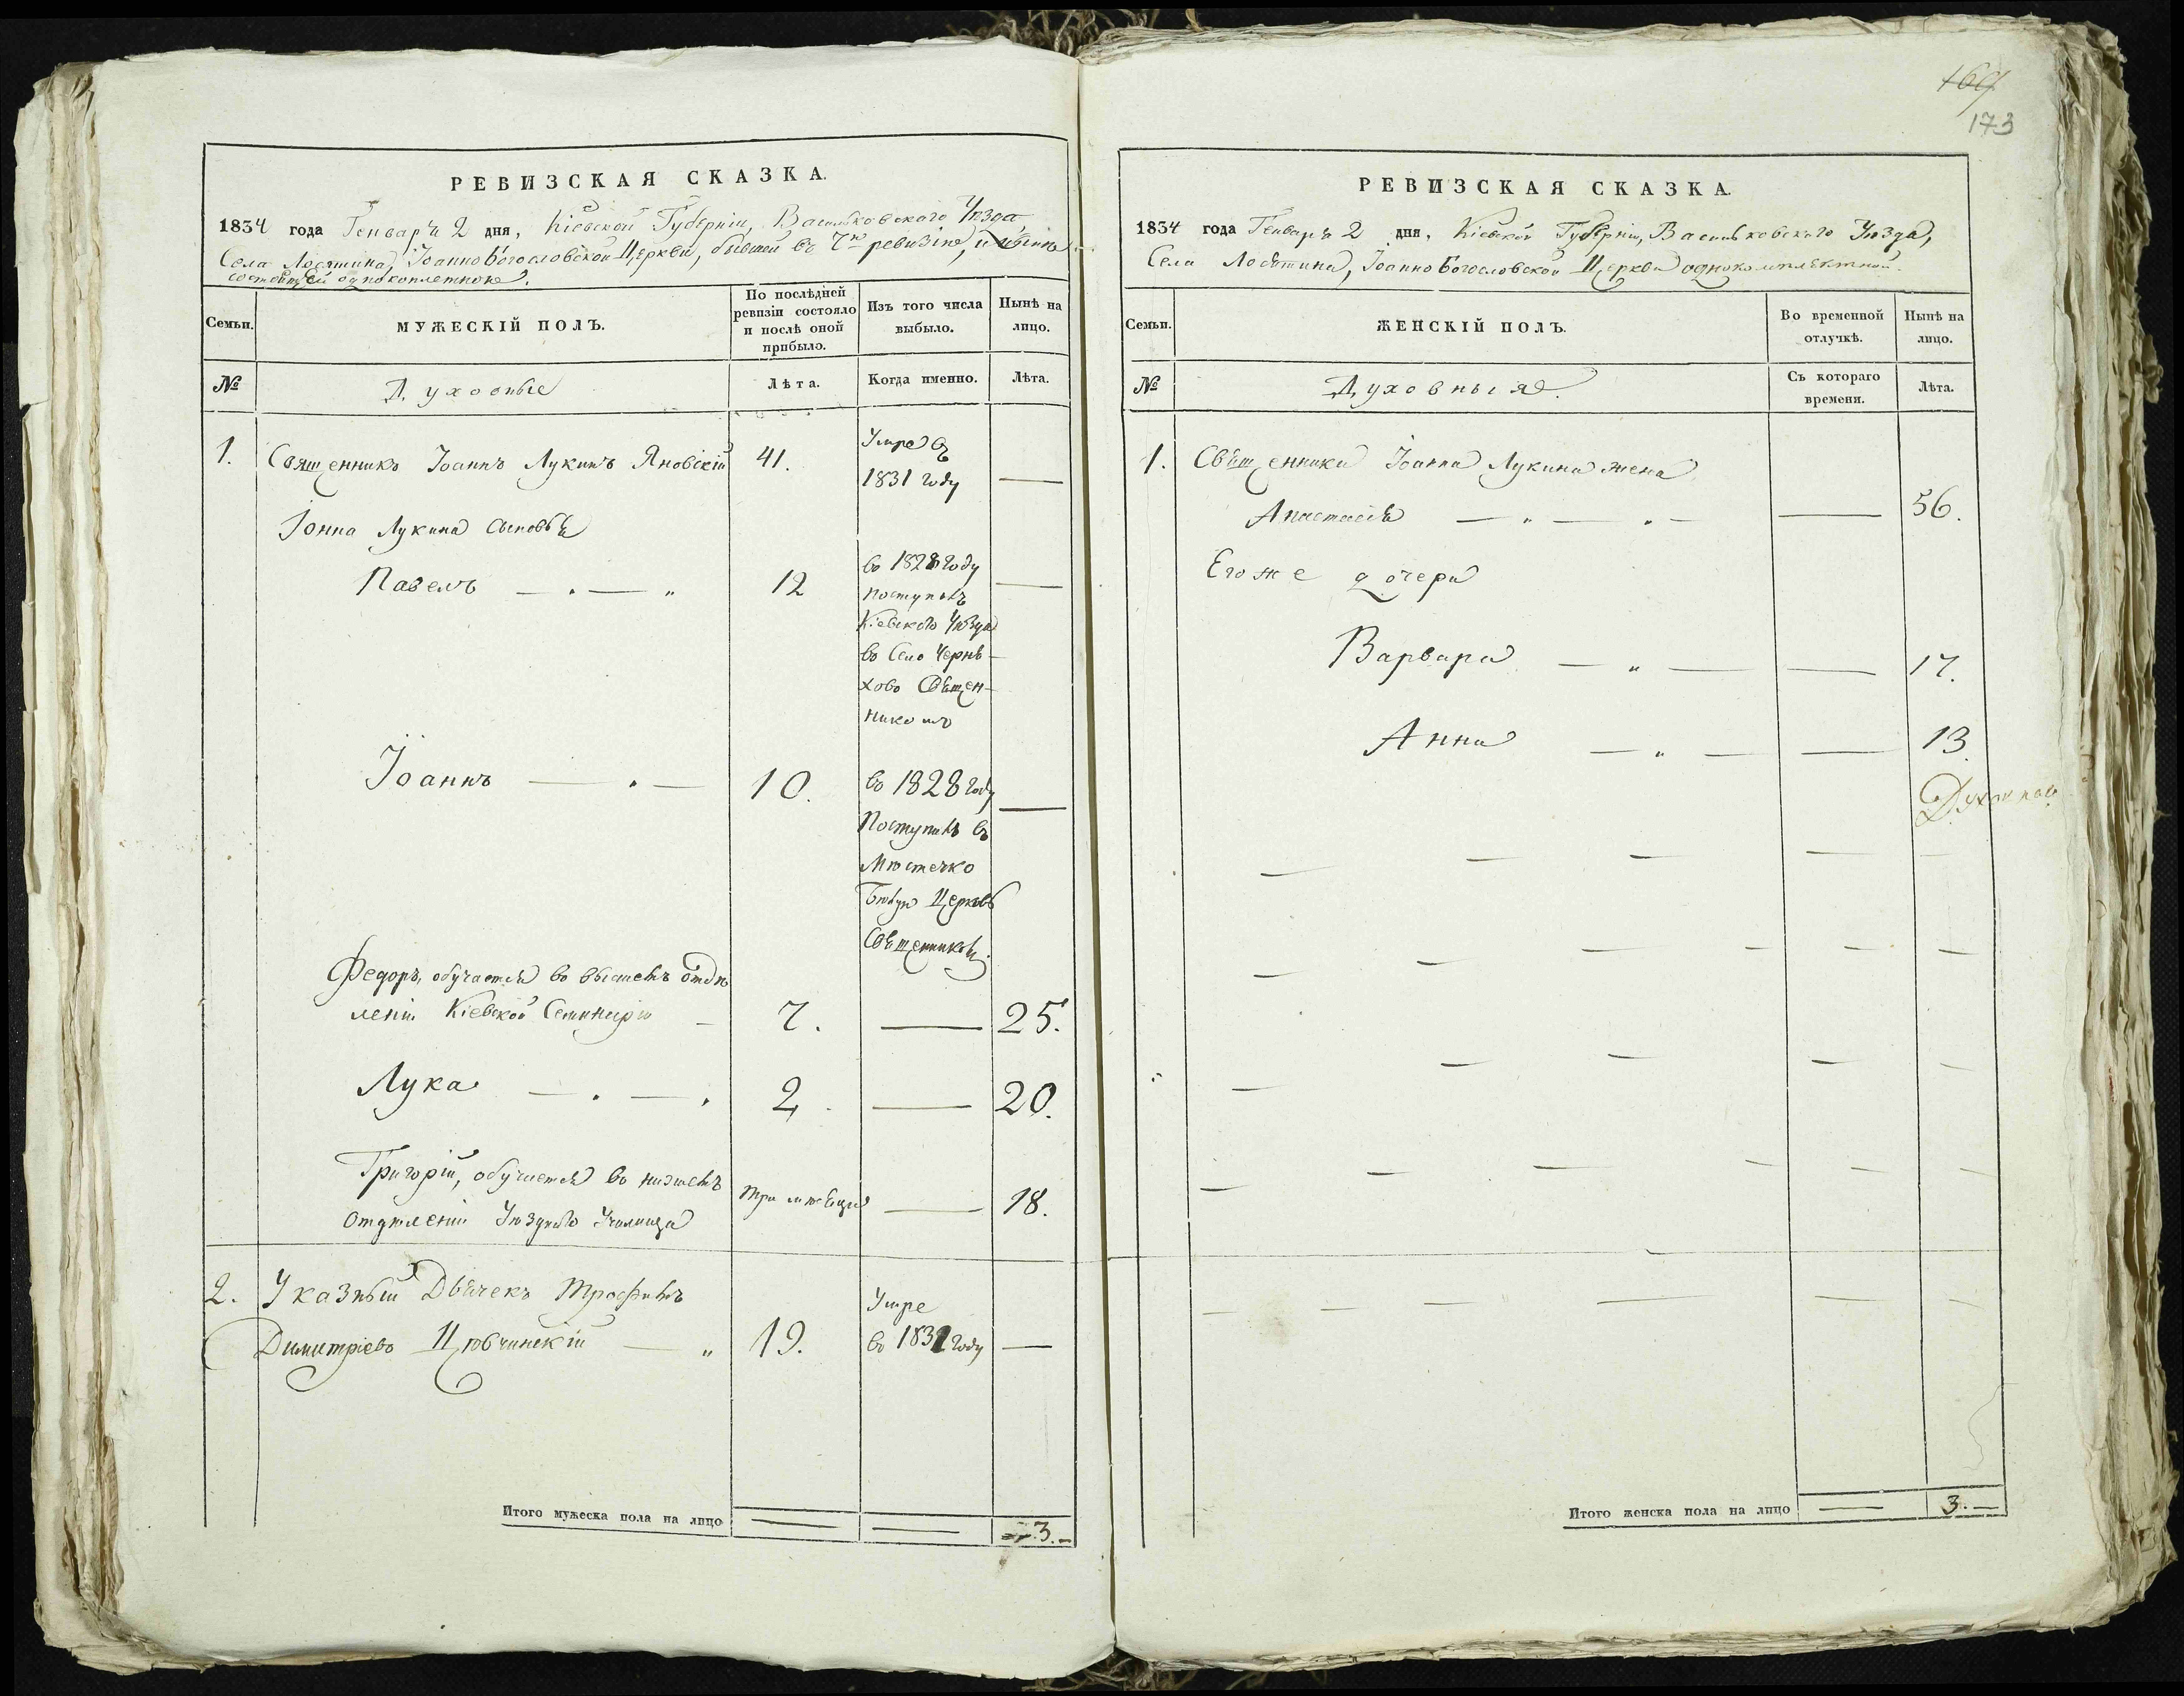 РЕВИЗСКАЯ СКАЗКА.
1834 года Генваря 2 дня, Кіевской Губерніи, Васильковского Уѣзда,
Села Лосятина, Іоанно Богословской Церкви, бывшей въ 7й ревизіи, и нынѣ
состоящей однокоплетною.
Семьи.
МУЖЕСКІЙ ПОЛЪ.
По послѣдней ревизіи состояло и послѣ оной прибыло.
Изъ того числа выбыло.
Нынѣ на лицо.
№
Духовные
Лѣта.
Когда именно.
Лѣта.
1. Священникъ Іоаннъ Лукинъ Яновскій 41. Умре въ
1831 году —
Іонна Лукина сыновья
Павелъ — 12 въ 1828 году —
поступилъ
Кіевского Уѣзда
въ Село Черня-
хово Священ-
никомъ
Іоаннъ — 10. въ 1828 году —
Поступилъ въ
Мѣстечко
Церковь
Священникомъ.
Федоръ, обучается въ высшемъ отдѣ
леніи Кіевской Семинаріи — 7. — 25.
Лука — 2. — 20.
Григорій, обучается въ низшемъ
отдѣленіи Уѣздного Училища три мѣсяца — 18.
2. Указный Дьячекъ Трофимъ
Димитріевъ Цѣвчинскій — 19. Умре
въ 1831 году —
Итого мужеска пола на лицо — — 3.
169
173
РЕВИЗСКАЯ СКАЗКА.
1834 года Генваря 2 дня, Кіевской Губерніи, Васильковского Уѣзда,
Села Лосятина, Іоанно Богословской Церкви однокомплектной.
Семьи.
ЖЕНСКІЙ ПОЛЪ.
Во временной отлучкѣ.
Нынѣ на лицо.
№
Духовныя.
Съ котораго времени.
Лѣта.
1. Священника Іоанна Лукина жена
Анастасія — — 56.
Его же дочери
Варвара — — 17.
Анна — — 13
Итого женска пола на лицо — 3.